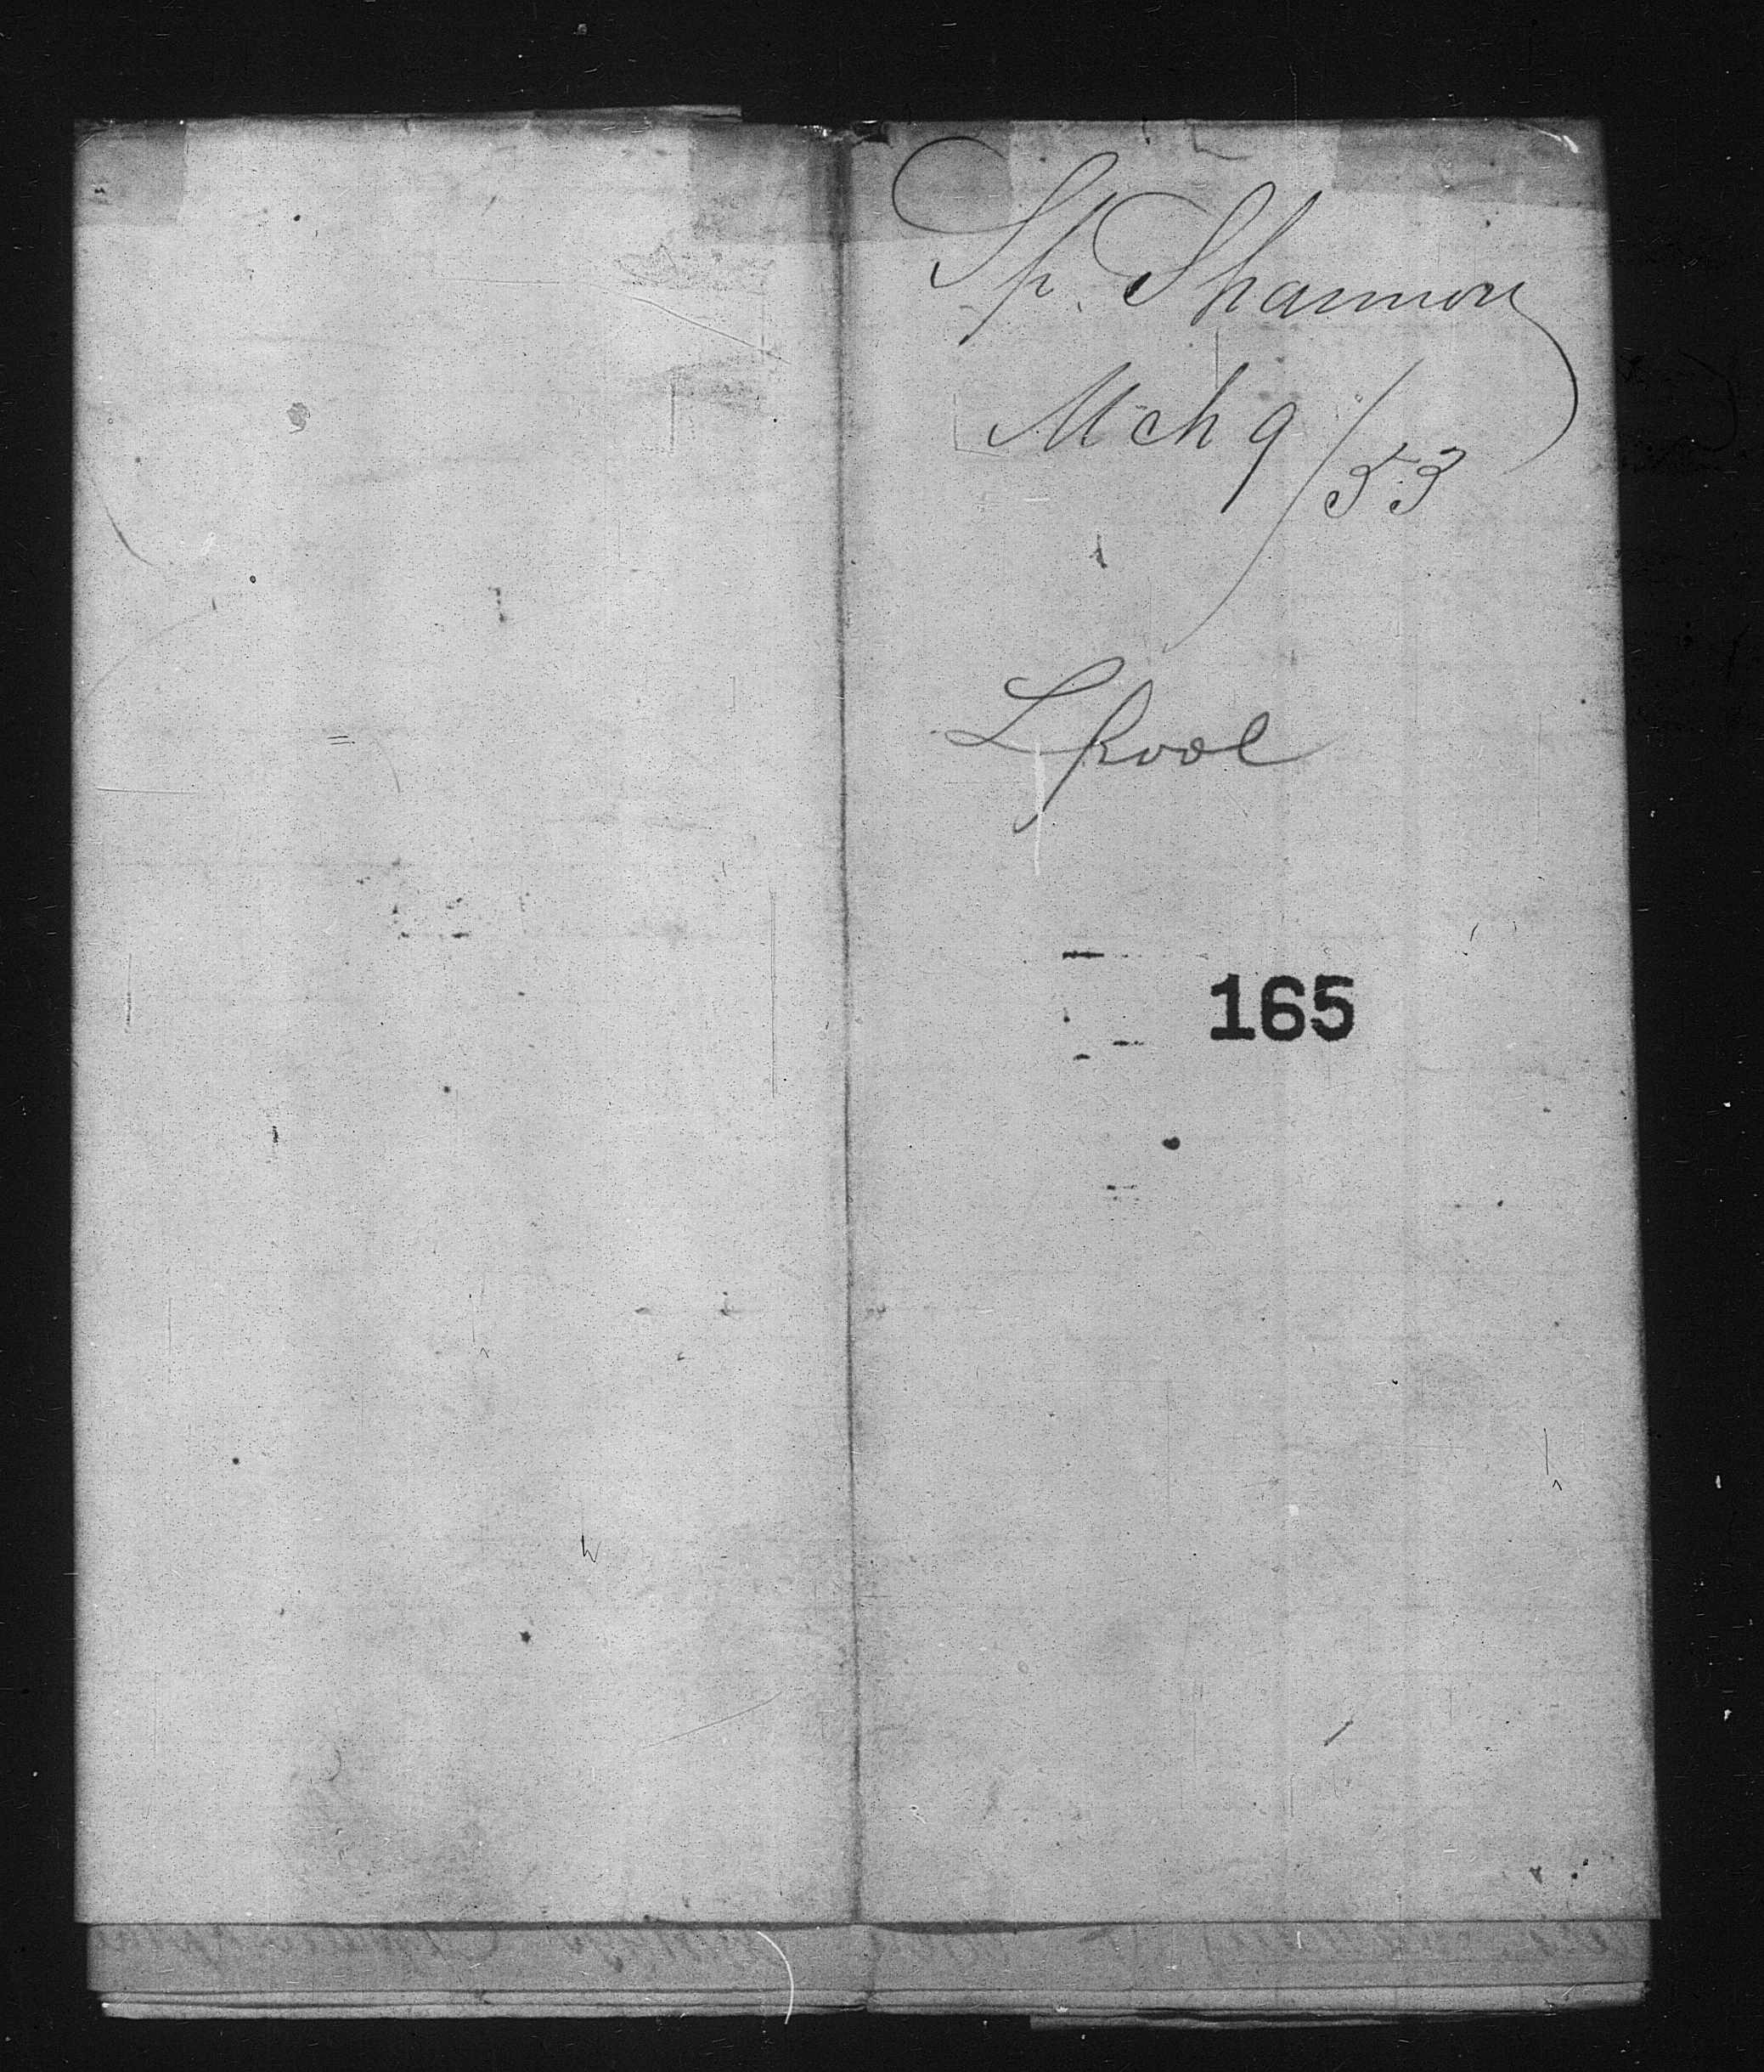 Sh. Shannon
Mch 9/53
Lpool
165